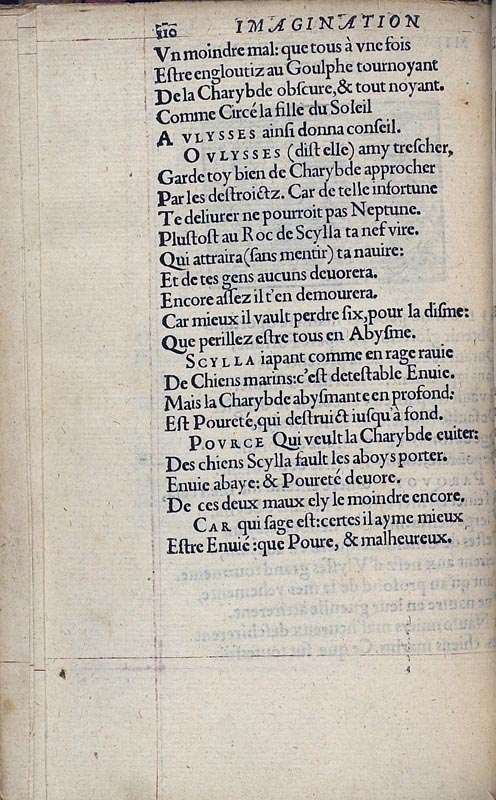 110 IMAGINATION
Vn moindre mal: que tous à vne fois
Estre engloutiz au Goulphe tournoyant
De la Charybde obscure, & tout noyant.
Comme Circé la fille du Soleil
A VLYSSES ainsi donna conseil.
O VLYSSES (dist elle) amy trescher,
Garde toy bien de Charybde approcher
Par les destroictz. Car de telle infortune
Te deliurer ne pourroit pas Neptune.
Plustost au Roc de Scylla ta nef vire.
Qui attraira (sans mentir) ta nauire:
Et de tes gens aucuns deuorera.
Encore assez il t'en demourera.
Car mieux il vault perdre six, pour la disme:
Que perillez estre tous en Abysme.
SCYLLA iapant comme en rage rauie
De Chiens marins: c'est detestable Enuie.
Mais la Charybde abysmante en profond:
Est Poureté, qui destruict iusqu'à fond.
POVRCE Qui veult la Charybde euiter:
Des chiens Scylla fault les aboys porter.
Enuie abaye: & Poureté deuore.
De ces deux maux ely le moindre encore.
CAR qui sage est: certes il ayme mieux
Estre Enuié: que Poure, & malheureux.